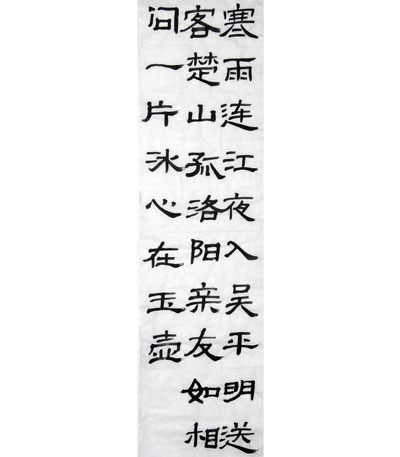 寒雨连江夜入吴平明送
客楚山孤洛阳亲友如相
问一片冰心在玉壶